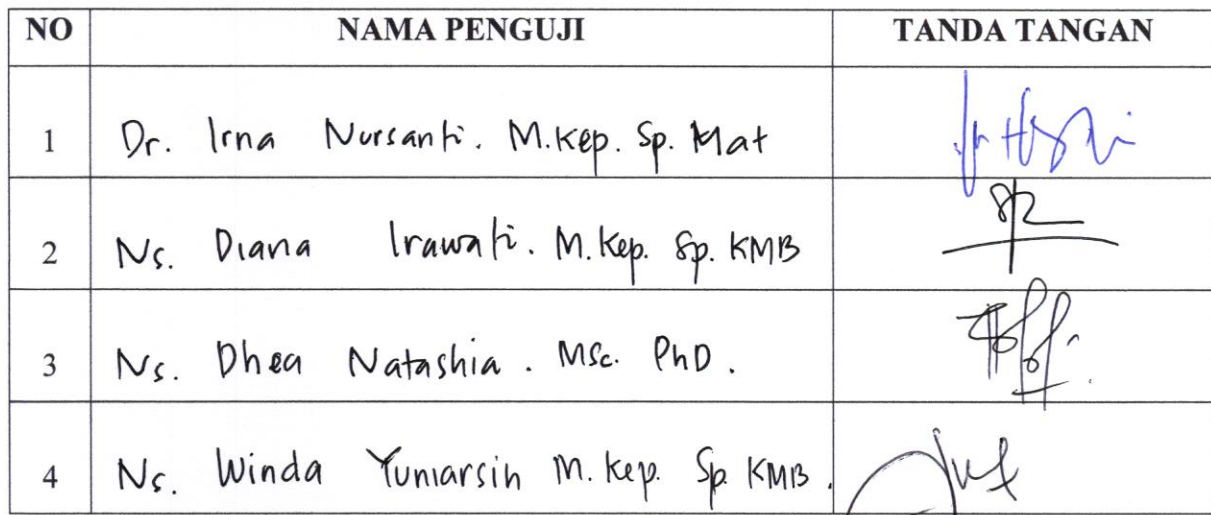 NO NAMA PENGUJI TANDA TANGAN
1 Dr. Irna Nursanti. M.Kep. Sp. Mat
2 Ns. Diana Irawati. M.Kep. Sp. KMB
3 Ns. Dhea Natashia. MSc. PhD.
4 Ns. Winda Yuniarsih M.Kep. Sp. KMB.